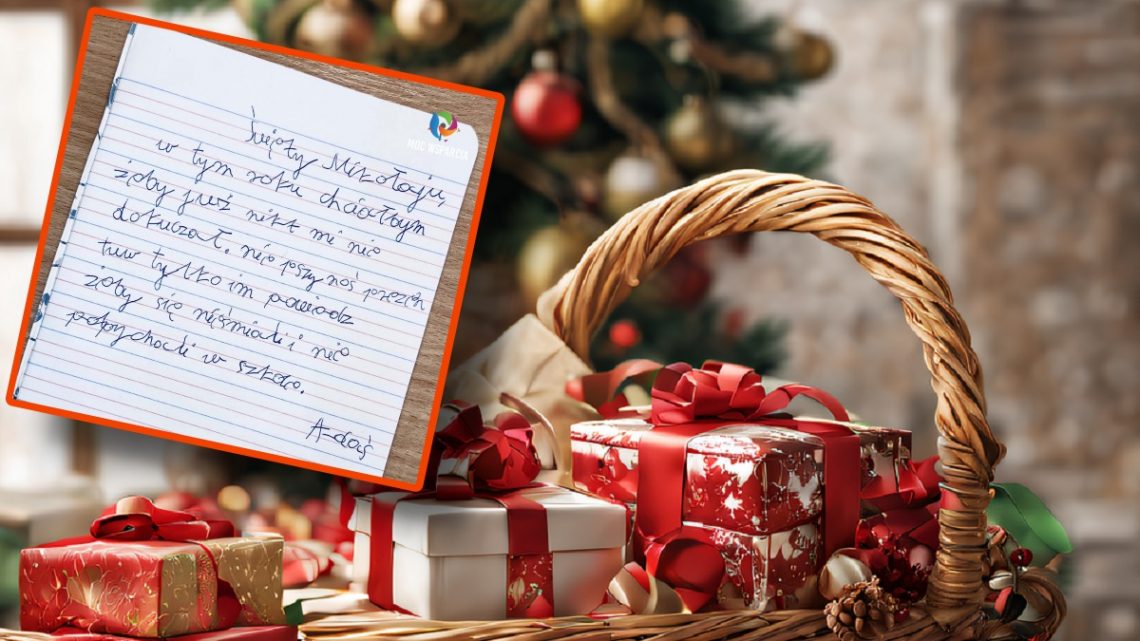 MOC WSPARCIA
Święty Mikołaju,
w tym roku chciałbym
żeby już nikt mi nie
dokuczał. nie pszynoś prezen
tuw tylko im powiedz
żeby się nieśmiali i nie
popychali w szkole.
A-daś